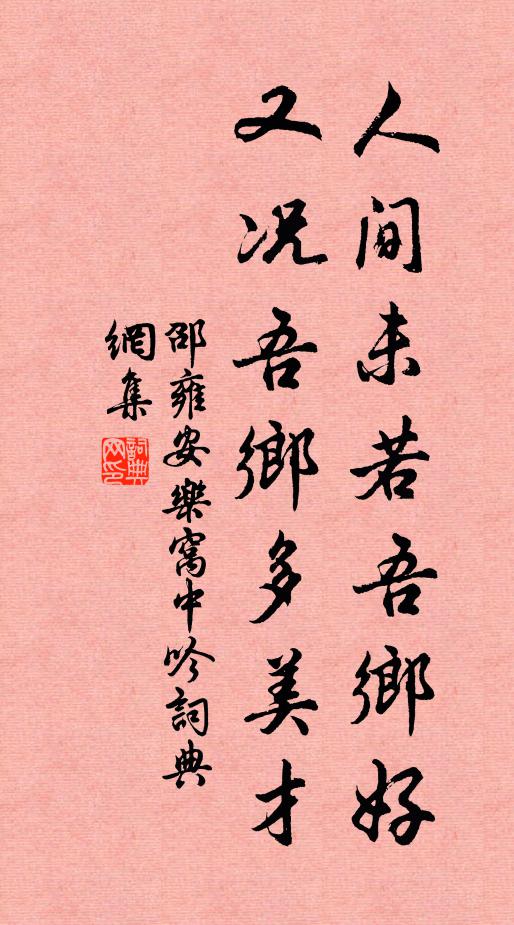 人间未若吾鄉好
又况吾鄉多美才
邵雍安樂窩中吟詞典
網集
詞典
网印